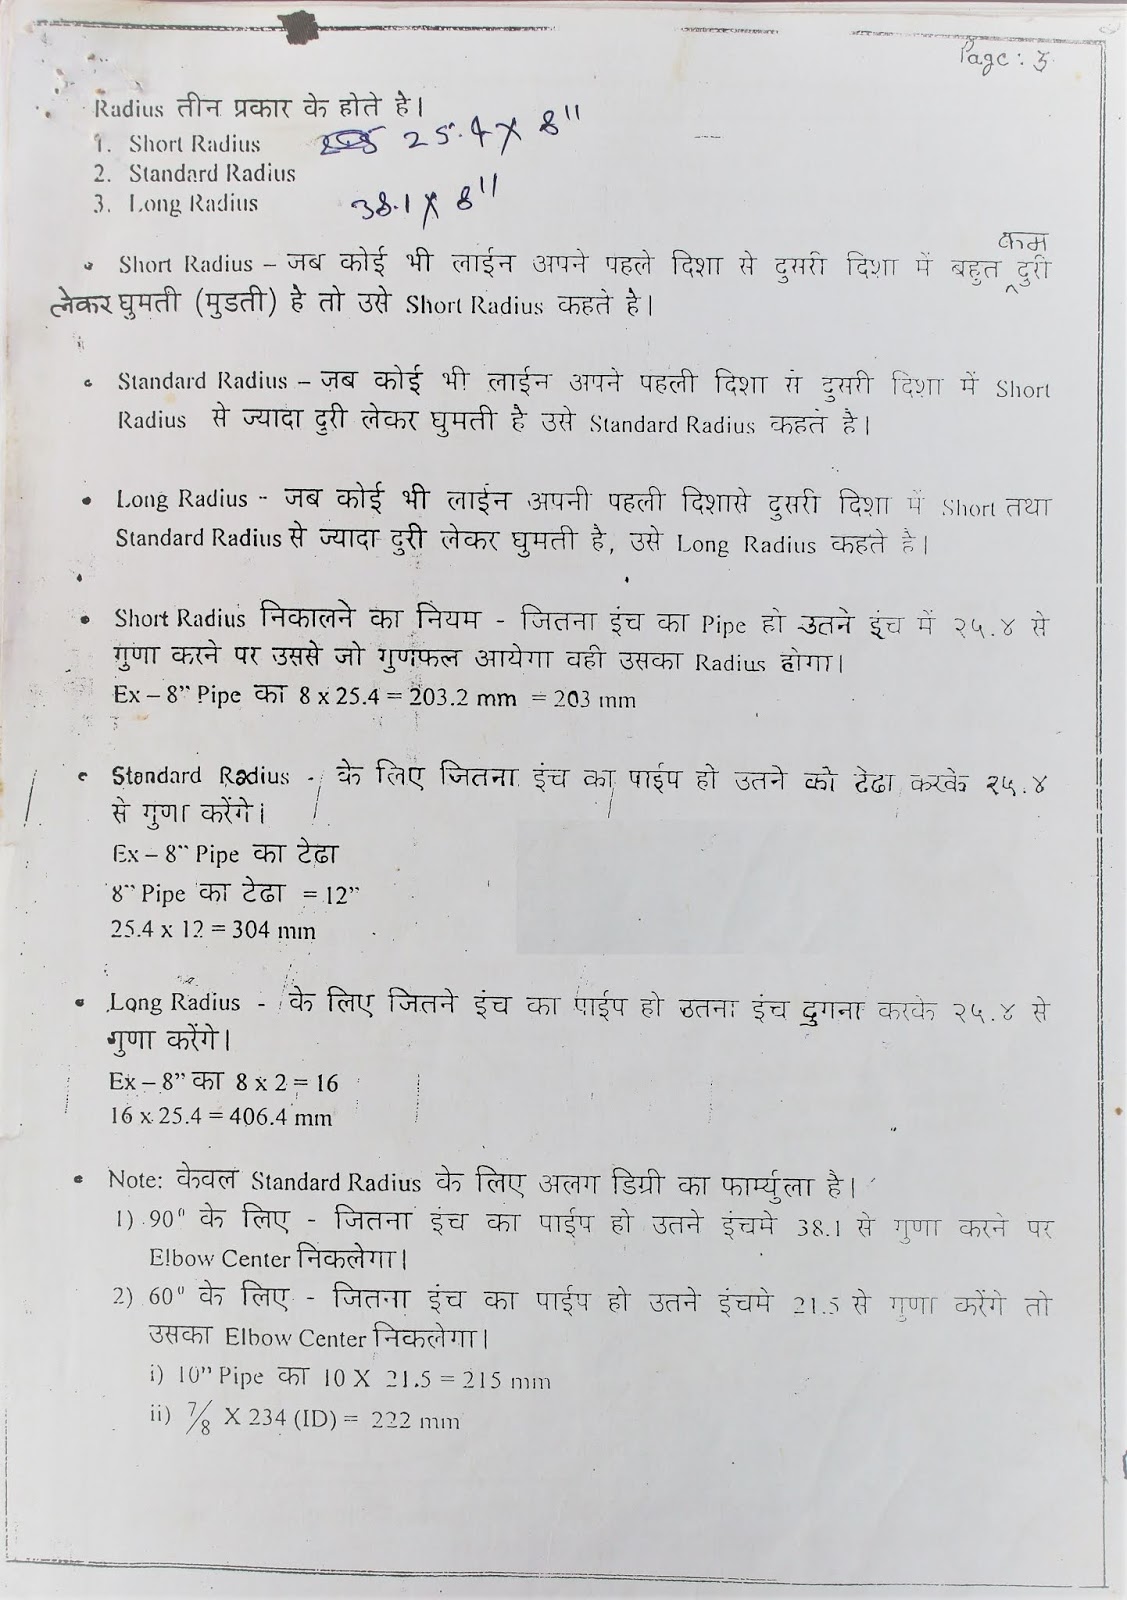 Page: 3
Radius तीन प्रकार के होते है।
1. Short Radius 25.4 X 8"
2. Standard Radius
3. Long Radius 38.1 X 8"
• Short Radius – जब कोई भी लाईन अपने पहले दिशा से दुसरी दिशा में बहुत कम दुरी
लेकर घुमती (मुडती) है तो उसे Short Radius कहते है।
• Standard Radius – जब कोई भी लाईन अपने पहली दिशा से दुसरी दिशा में Short
Radius से ज्यादा दुरी लेकर घुमती है उसे Standard Radius कहते है।
• Long Radius - जब कोई भी लाईन अपनी पहली दिशासे दुसरी दिशा में Short तथा
Standard Radius से ज्यादा दुरी लेकर घुमती है, उसे Long Radius कहते है।
• Short Radius निकालने का नियम - जितना इंच का Pipe हो उतने इंच में २५.४ से
गुणा करने पर उससे जो गुणफल आयेगा वही उसका Radius होगा।
Ex – 8” Pipe का 8 x 25.4 = 203.2 mm = 203 mm
• Standard Radius - के लिए जितना इंच का पाईप हो उतने को टेढा करके २५.४
से गुणा करेंगे।
Ex – 8” Pipe का टेढा
8” Pipe का टेढा = 12”
25.4 x 12 = 304 mm
• Long Radius - के लिए जितने इंच का पाईप हो उतना इंच दुगना करके २५.४ से
गुणा करेंगे।
Ex – 8” का 8 x 2 = 16
16 x 25.4 = 406.4 mm
• Note: केवल Standard Radius के लिए अलग डिग्री का फार्म्युला है।
1) 90⁰ के लिए - जितना इंच का पाईप हो उतने इंचमे 38.1 से गुणा करने पर
Elbow Center निकलेगा।
2) 60⁰ के लिए - जितना इंच का पाईप हो उतने इंचमे 21.5 से गुणा करेंगे तो
उसका Elbow Center निकलेगा।
i) 10” Pipe का 10 X 21.5 = 215 mm
ii) 7/8 X 234 (ID) = 222 mm